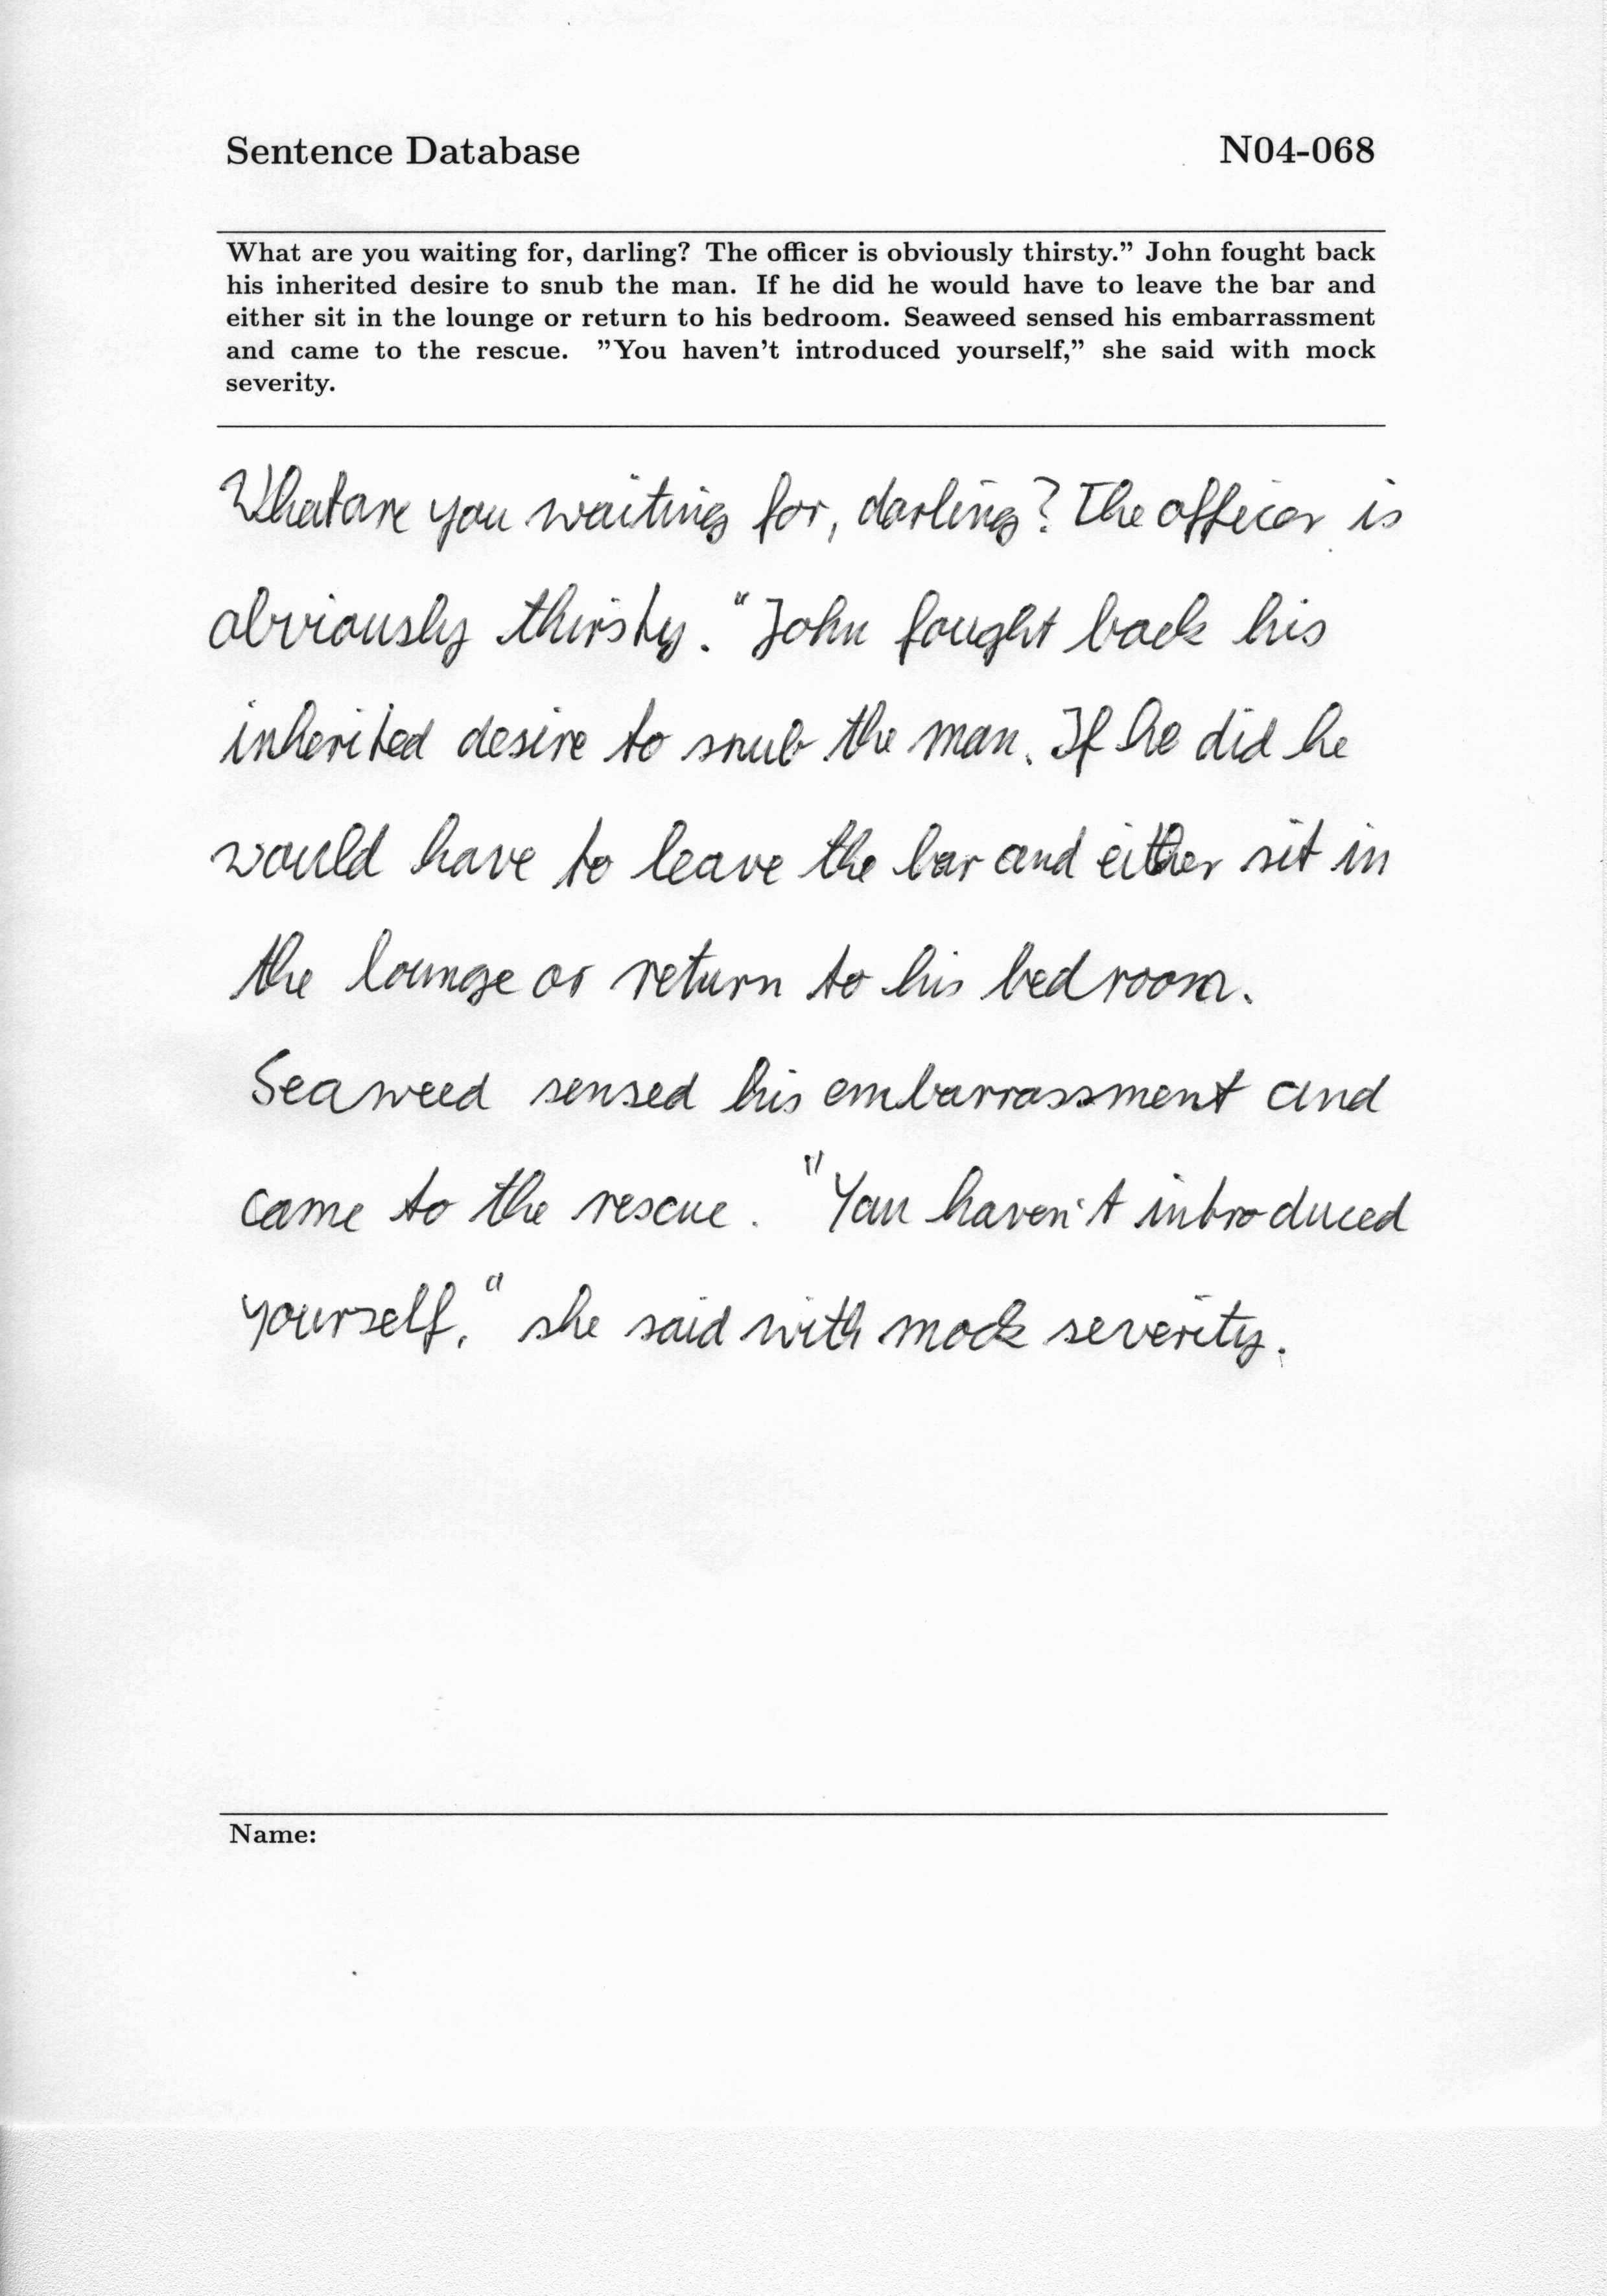 Sentence Database N04-068
What are you waiting for, darling? The officer is obviously thirsty.” John fought back
his inherited desire to snub the man. If he did he would have to leave the bar and
either sit in the lounge or return to his bedroom. Seaweed sensed his embarrassment
and came to the rescue. ”You haven’t introduced yourself,” she said with mock
severity.
What are you waiting for, darling? The officer is
obviously thirsty. “John fought back his
inherited desire to snub the man. If he did he
would have to leave the bar and either sit in
the lounge or return to his bedroom.
Seaweed sensed his embarrassment and
came to the rescue. "You haven't introduced
yourself," she said with mock severity.
Name: